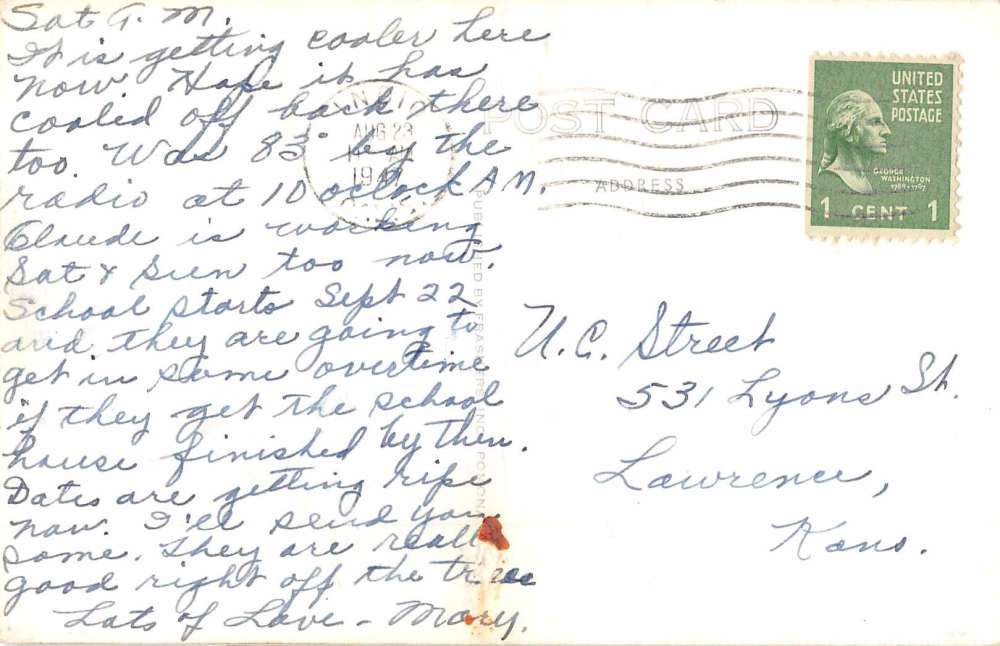 Sat A.M.
It is getting cooler here
now. Hope it has
cooled off back there
too. Was 83° by the
radio at 10 oclock AM.
Claude is working
Sat & Sun too now.
School starts Sept 22
and they are going to
get in some overtime
if they get the school
house finished by then.
Dates are getting ripe
now. I'll send you
some. They are really
good right off the tree
Lots of Love - Mary.
POST CARD
ADDRESS
AUG 23
UNITED
STATES
POSTAGE
GEORGE
WASHINGTON
1789-1797
1 CENT 1
U.C. Street
531 Lyons St.
Lawrence,
Kans.
PUBLISHED BY FRASHERS INC. POMONA